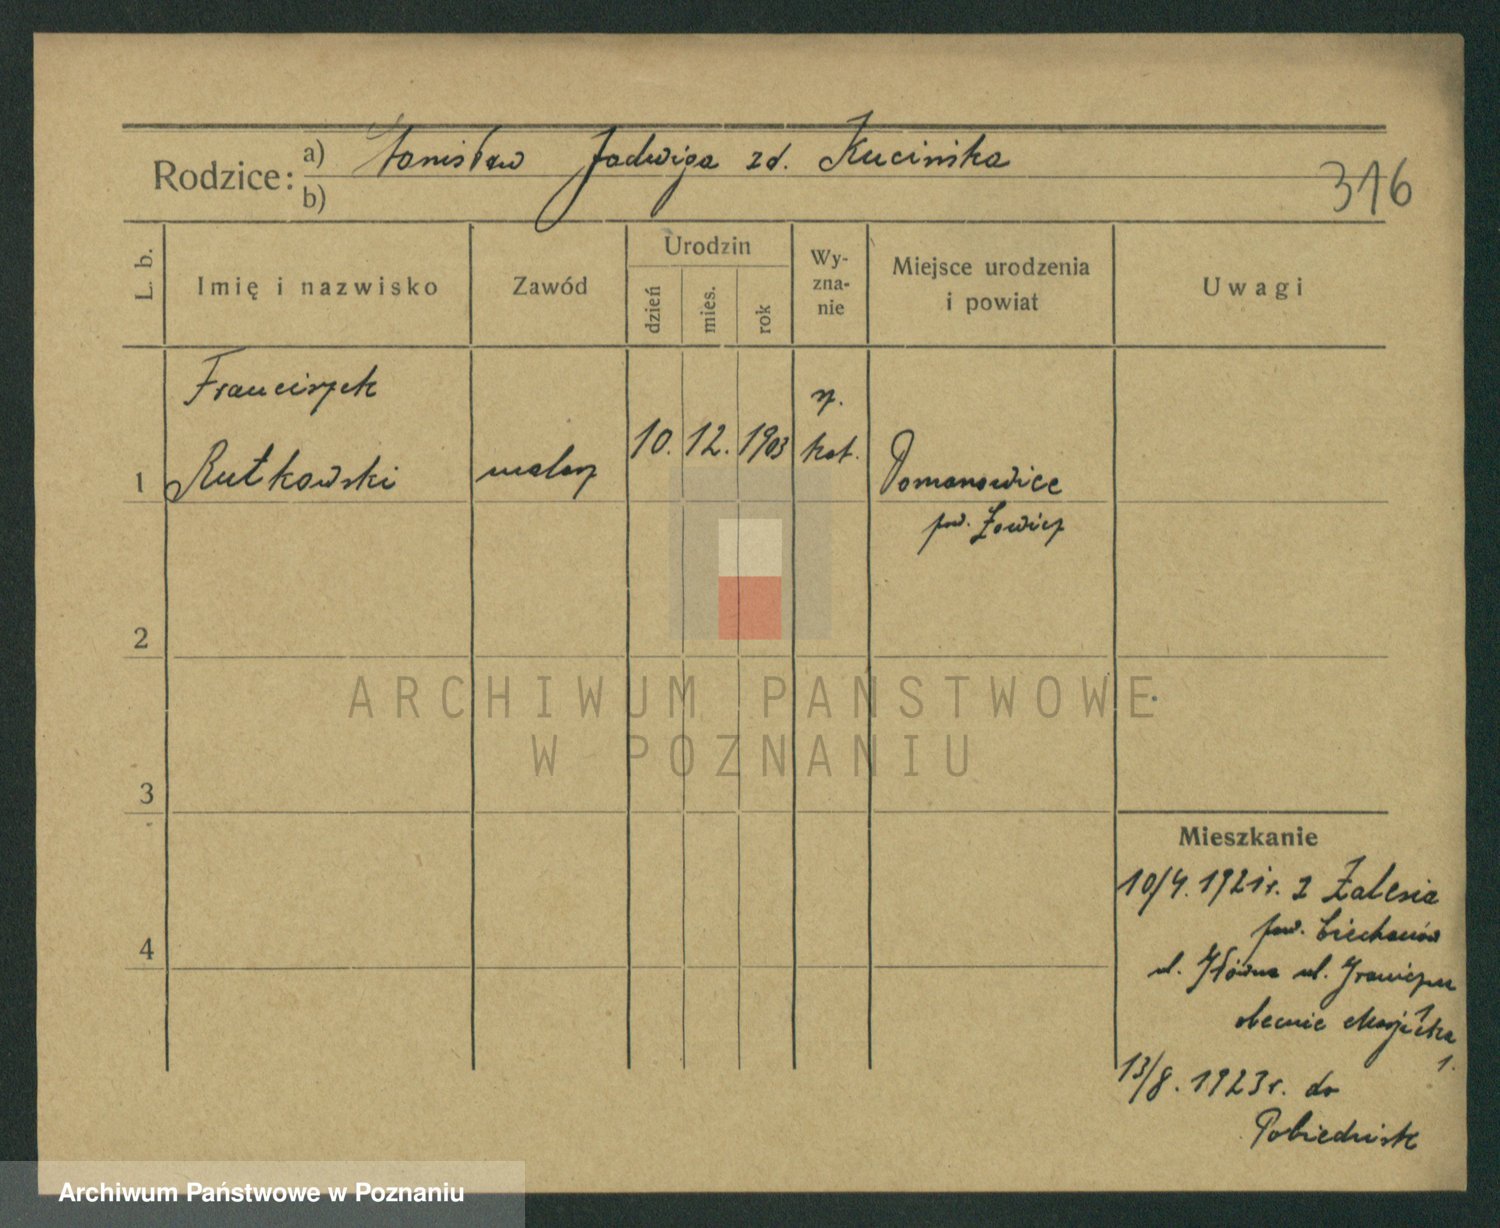 Rodzice: a) Stanisław Jadwiga zd. Kucińska
b)
316
L. b.
Imię i nazwisko
Zawód
Urodzin
dzień
mies.
rok
Wy-
zna-
nie
Miejsce urodzenia
i powiat
Uwagi
Franciszek
rz.
1 Rutkowski malarz 10. 12. 1903 kat. Domanowice
pow. Łowicz
2
3
4
Mieszkanie
10/4. 1921 r. z Zalesia
pow. Ciechanów
Główna ul.
obecnie
1.
13/8. 1923 r. do
Pobiedzisk
ARCHIWUM PAŃSTWOWE
W POZNANIU
Archiwum Państwowe w Poznaniu